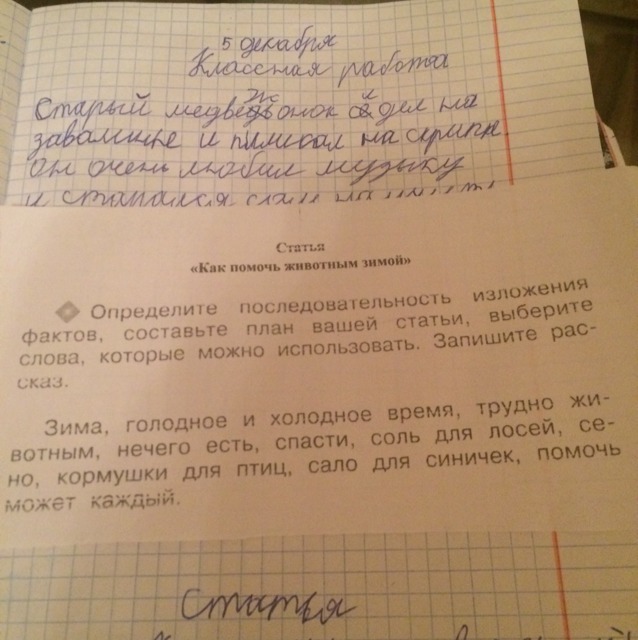 5 декабря
Классная работа
Старый медвежонок сидел на
завалинке и пиликал на скрипке.
Он очень любил музыку
и старался сам
Статья
«Как помочь животным зимой»
Определите последовательность изложения
фактов, составьте план вашей статьи, выберите
слова, которые можно использовать. Запишите рас-
сказ.
Зима, голодное и холодное время, трудно жи-
вотным, нечего есть, спасти, соль для лосей, се-
но, кормушки для птиц, сало для синичек, помочь
может каждый.
Статья